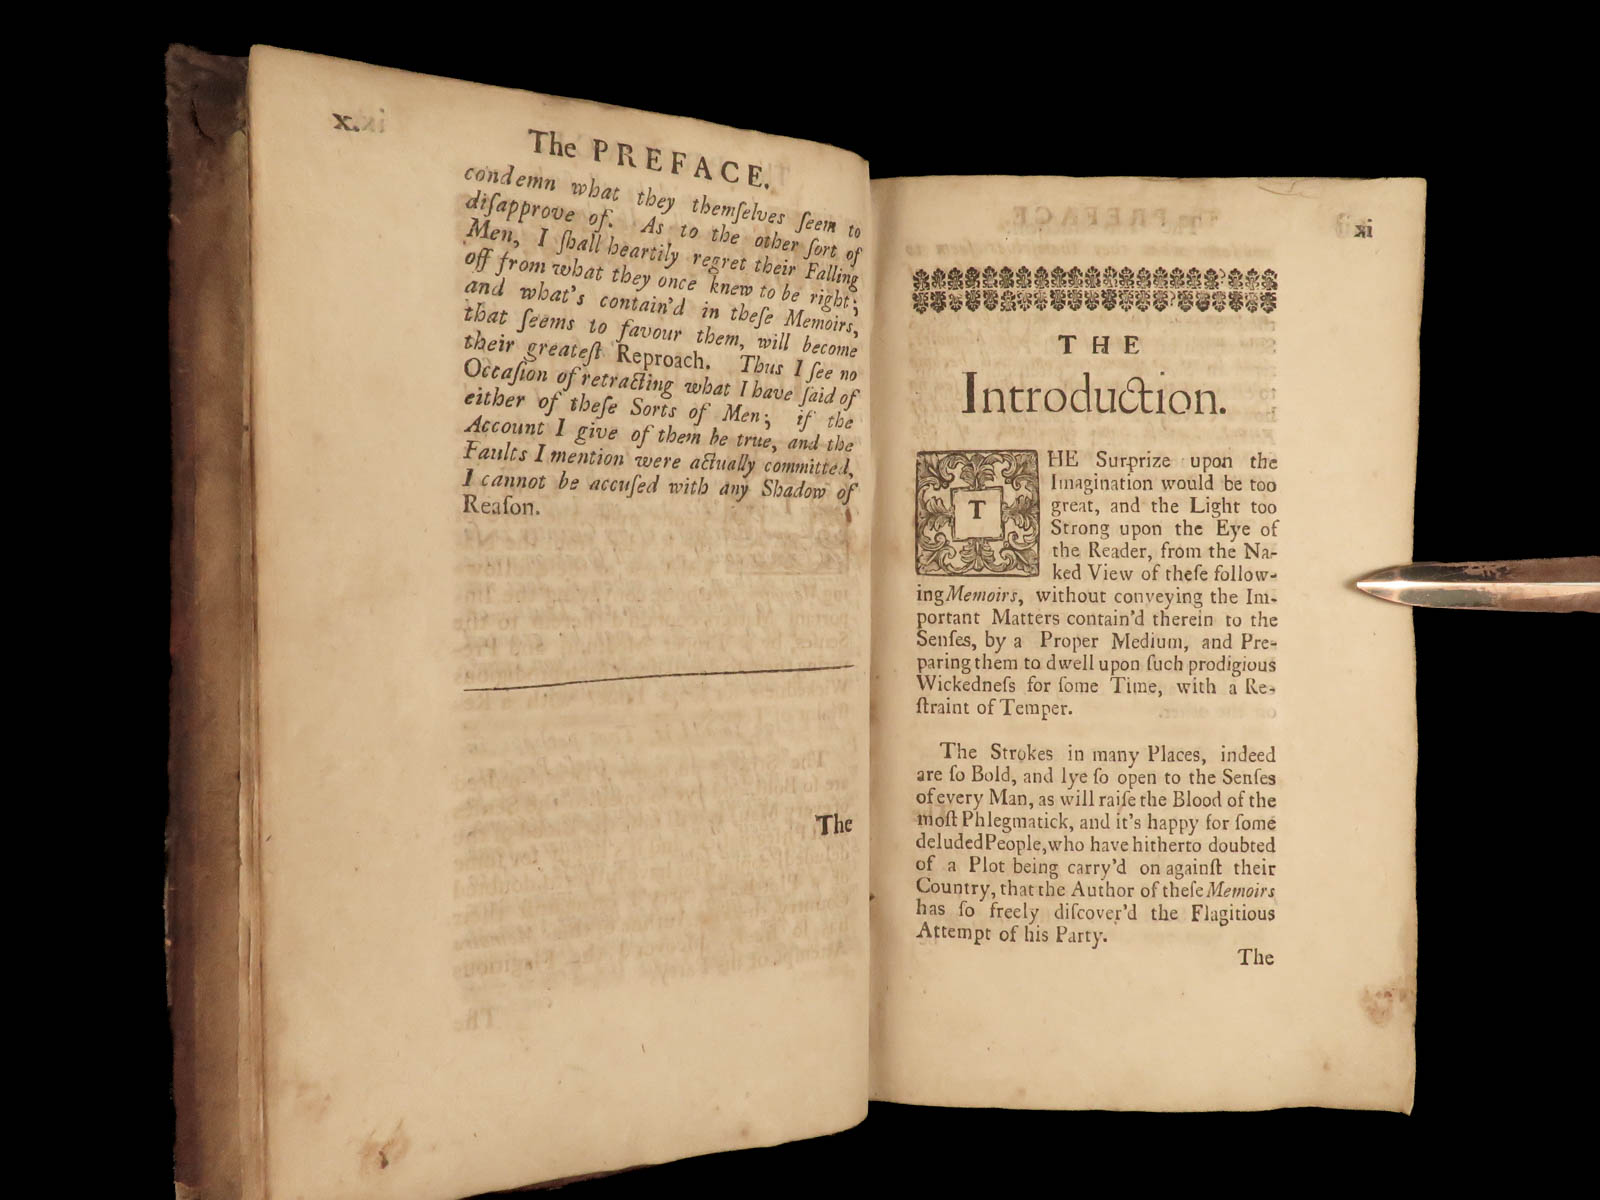 x.
The PREFACE.
condemn what they themſelves ſeem to
diſapprove of. As to the other ſort of
Men, I ſhall heartily regret their Falling
off from what they once knew to be right;
and what's contain'd in theſe Memoirs,
that ſeems to favour them, will become
their greateſt Reproach. Thus I ſee no
Occaſion of retracting what I have ſaid of
either of theſe Sorts of Men; if the
Account I give of them be true, and the
Faults I mention were actually committed,
I cannot be accuſed with any Shadow of
Reaſon.
The
xi
THE
Introduction.
THE Surprize upon the
Imagination would be too
great, and the Light too
Strong upon the Eye of
the Reader, from the Na-
ked View of theſe follow-
ing Memoirs, without conveying the Im-
portant Matters contain'd therein to the
Senſes, by a Proper Medium, and Pre-
paring them to dwell upon ſuch prodigious
Wickedneſs for ſome Time, with a Re-
ſtraint of Temper.
The Strokes in many Places, indeed
are ſo Bold, and lye ſo open to the Senſes
of every Man, as will raiſe the Blood of the
moſt Phlegmatick, and it's happy for ſome
deluded People, who have hitherto doubted
of a Plot being carry'd on againſt their
Country, that the Author of theſe Memoirs
has ſo freely diſcover'd the Flagitious
Attempt of his Party.
The